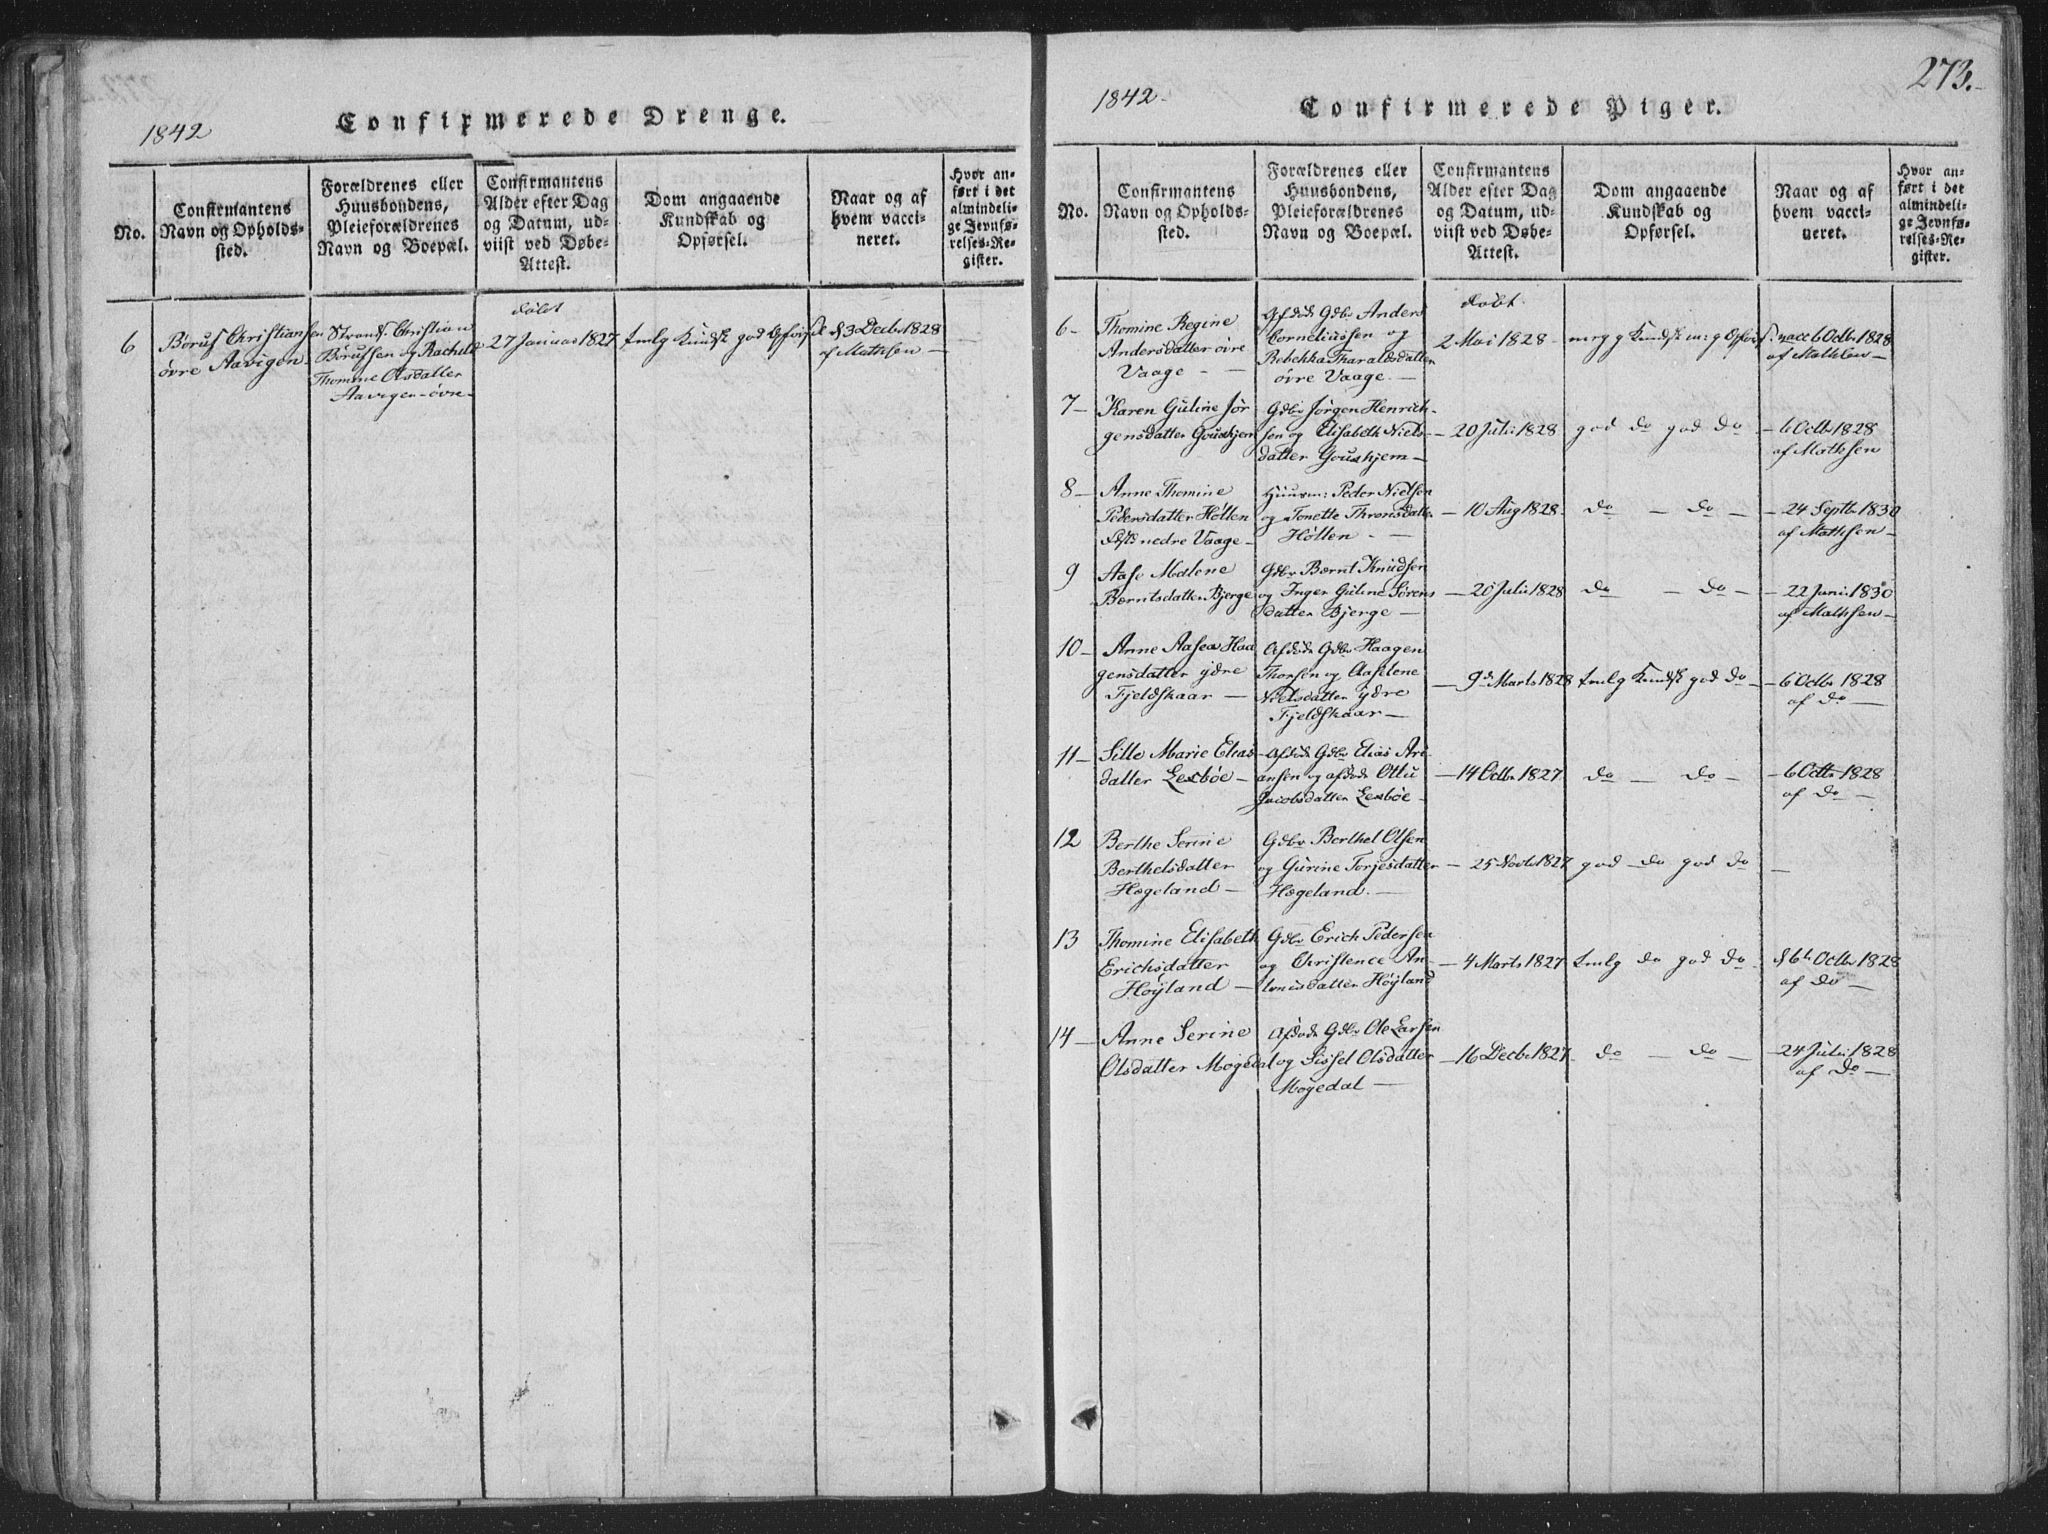 1842
Confirmerede Drenge.
No.
Confirmantens
Navn og Opholds-
sted.
Forældrenes eller
Huusbondens,
Pleieforældrenes
Navn og Boepæl.
Confirmantens
Alder efter Dag
og Datum, ud-
viist ved Døbe-
Attest.
Dom angaaende
Kundskab og
Opførsel.
Naar og af
hvem vacci-
neret.
Hvor an-
ført i det
almindeli-
ge Jevnfø-
relses-Re-
gister.
6
Børuf Christiansen
øvre Aavigen
Strands. Christian
Børufsen og Rachel
Thomine Olsdatter
Aavigen øvre
døbt
27 Januar 1827
tmlg Kundsk god Opførsel
d 3 Decbr 1828
af Mathsen
273.
1842
Confirmerede Piger.
No.
Confirmantens
Navn og Opholds-
sted.
Forældrenes eller
Huusbondens,
Pleieforældrenes
Navn og Boepæl.
Confirmantens
Alder efter Dag
og Datum, ud-
viist ved Døbe-
Attest.
Dom angaaende
Kundskab og
Opførsel.
Naar og af
hvem vacci-
neret.
Hvor an-
ført i det
almindeli-
ge Jevnfø-
relses-Re-
gister.
6 -
Thomine Regine
Andersdatter øvre
Vaage -
Afdøde Gdbr Anders
Corneliussen og
Bebekka Tharaldsdatter
øvre Vaage. -
døbt
2 Mai 1828 -
m: g Kundsk m: g Opførs
vacc 6 Octbr 1828
af Mathsen -
7 -
Karen Guline Jør
gensdatter Gouskjem
Gdbr Jørgen Henrich-
sen og Elisabeth Niels-
datter Gouskjem -
- 20 Juli 1828
god do god do
- 6 Octb 1828
af Mathsen
8 -
Anne Thomine
Pedersdatter Hølten
nedre Vaage -
Huusm: Peder Nielsen
og Tonette Thronsdatter
Hølten - -
- 10 Aug 1828 -
do - do -
- 24 Septbr 1830
af Mathsen -
9
Aase Malene
Bærntsdatter Bjerge
Gdbr Bærnt Knudsen
og Inger Guline Sørens
datter Bjerge -
- 20 Juli 1828
do - do -
- 22 Juni 1830
af Mathsen -
10 -
Anne Aasea Haa
gensdatter ydre
Fjeldskaar -
Afdøde Gdbr Haagen
Thorsen og Aaselene
Nielsdatter ydre
Fjeldskaar -
- 9de Marts 1828
tmlg Kundsk god do -
- 6 Octbr 1828
af do -
11 -
Sille Marie Elias
datter Lexbøe -
Afdøde Gdbr Elias Ari-
ansen og afdøde Ottu
Jacobsdatter Lexbøe -
- 14 Octbr 1827
do - do -
- 6 Octbr 1828
af do -
12
Berthe Serine
Berthelsdatter
Hægeland -
Gdbr Berthel Olsen
og Gurine Torjesdatter
Hægeland. -
- 25 Novb 1827
god - do god do
-
13
Thomine Elisabeth
Erichsdatter
Høyland -
Gdbr Erich Pedersen
og Christence An-
tonisdatter Høyland
- 4 Marts 1827
tmlg do god do
d 6te Octbr 1828
af do -
14 -
Anne Serine
Olsdatter Møgedal
Afdøde Gdbr Ole Larsen
og Sissel Olsdatter
Møgedal -
- 16 Decbr 1827
do - do -
- 24 Juli 1828
af do -